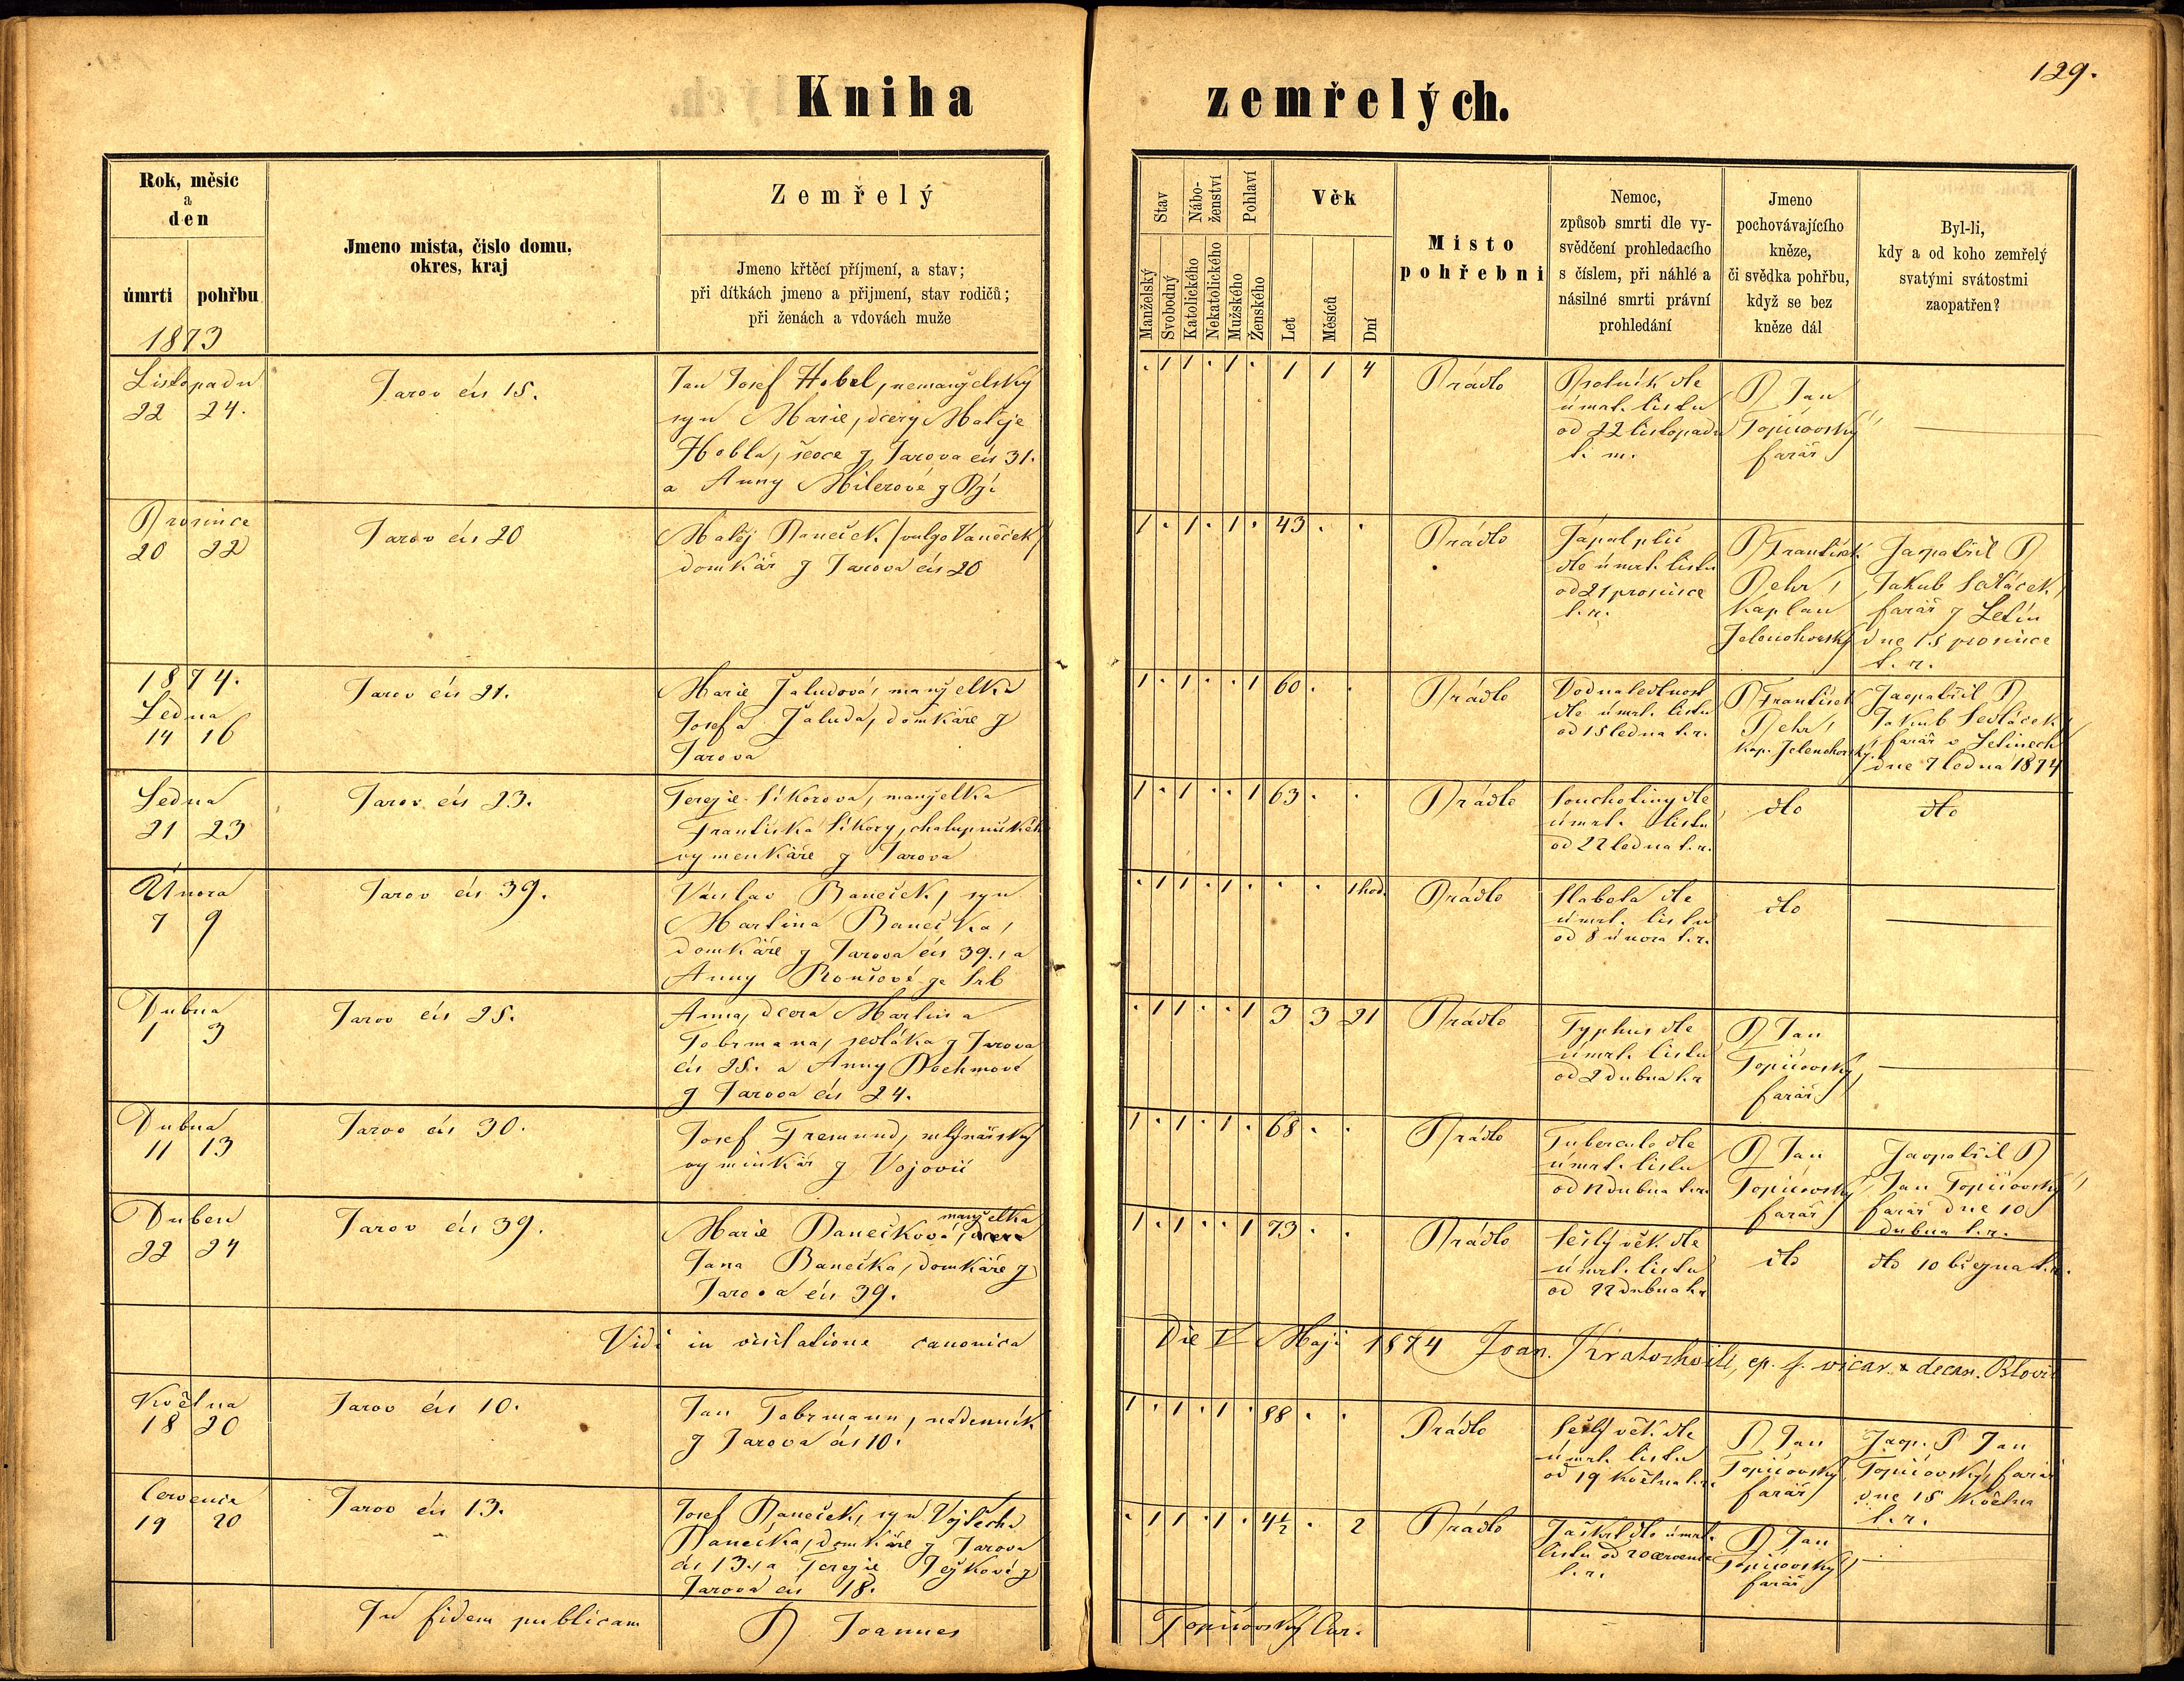 129.
Kniha zemřelých.
Rok, měsic
a
den
úmrti pohřbu
1873
Jmeno mista, čislo domu,
okres, kraj
Zemřelý
Jmeno křtěcí příjmení, a stav;
při dítkách jmeno a přijmení, stav rodičů;
při ženách a vdovách muže
Stav
Nábo-
ženství
Pohlaví
Věk
Manželský
Svobodný
Katolického
Nekatolického
Mužského
Ženského
Let
Měsíců
Dní
Misto
pohřebni
Nemoc,
způsob smrti dle vy-
svědčení prohledacího
s číslem, při náhlé a
násilné smrti právní
prohledání
Jmeno
pochovávajícího
kněze,
či svědka pohřbu,
když se bez
kněze dál
Byl-li,
kdy a od koho zemřelý
svatými svátostmi
zaopatřen?
Listopadu
22 24.
Jarov čís 15.
Jan Josef Hobl, nemanželský
syn Marie, dcery Matěje
Hobla, ševce z Jarova čís 31.
a Anny Milerové z
. 1 1 . 1 . 1 1 4
Prádlo
dle
úmrt. listu
od 22 listopadu
t. m.
P Jan
Topičovský,
farář
Prosince
20 22
Jarov čís 20
Matěj Paneček (vulgo Vaněček)
domkář z Jarova čís 20
1 . 1 . 1 . 43 . .
Prádlo
Zápal plic
dle úmrt. listu
od 21 prosince
t. r.
P František
Pehr,
kaplan
Zelenohorský
Zaopatřil P
Jakub Sedláček,
farář z Letin
dne 15 prosince
t. r.
1874.
Ledna
14 16
Jarov čís 21.
Marie Žaludová, manželka
Josefa Žaluda, domkáře z
Jarova
1 . 1 . . 1 60 . .
Prádlo
Vodnatedlnost
dle úmrt. listu
od 15 ledna t. r.
P František
Pehr,
kap. Zelenohorský.
Zaopatřil P
Jakub Sedláček,
farář v Letinech
dne 7 ledna 1874
Ledna
21 23
Jarov čís 23.
Terezie Sikorova, manželka
Františka Sikory, chalupnického
vymenkáře z Jarova
1 . 1 . . 1 63 . .
Prádlo
Souchotiny dle
úmrt. listu
od 22 ledna t. r.
dto
dto
Února
7 9
Jarov čís 39.
Václav Baneček, syn
Martina Banečka,
domkáře z Jarova čís 39., a
Anny Roušové ze Srb
. 1 1 . 1 . . . 1 hod.
Prádlo
Slabota dle
úmrt. listu
od 8 února t. r.
dto
Dubna
1 3
Jarov čís 25.
Anna, dcera Martina
Tobrmana, sedláka z Jarova
čís 25. a Anny Pochmové
z Jarova čís 24.
. 1 1 . . 1 3 3 21
Prádlo
Typhus dle
úmrt. listu
od 2 dubna t. r
P Jan
Topičovský,
farář
Dubna
11 13
Jarov čís 30.
Josef Fremund, mlynářský
vyminkář z Vojovic
1 . 1 . 1 . 68 . .
Prádlo
Tuberculo dle
úmrt. listu
od 12 dubna t. r.
P Jan
Topičovský,
farář
Zaopatřil P
Jan Topičovský,
farář dne 10
dubna t. r.
Duben
22 24
Jarov čís 39.
manželka
Marie Panečková,
Jana Banečka, domkáře z
Jarova čís 39.
1 . 1 . . 1 73 . .
Prádlo
Sešlý věk dle
úmrt. listu
od 22 dubna t. r
dto
dto 10 března t. r.
Vidi in visitatione canonica Die V Maji 1874 Joan. Kratochvile, ep. f. vicar. & decan. Blovic
Května
18 20
Jarov čís 10.
Jan Tobrmann, nádenník
z Jarova čís 10.
1 . 1 . 1 . 88 . .
Prádlo
Sešlý věk dle
úmrt. listu
od 19 května t. r.
P Jan
Topičovský
farář
Zaop. P Jan
Topičovský, farář
dne 15 května
t. r.
Července
19 20
Jarov čís 13.
Josef Paneček, syn Vojtěcha
Panečka, domkáře z Jarova
čís 13., a Terezie Pejskové z
Jarova čís 18.
. 1 1 . 1 . 4½ . 2
Prádlo
Záškrt dle úmrt.
listu od 20 července
t. r.
P Jan
Topičovský,
farář
In fidem publicam P Joannes Topičovský Cur.